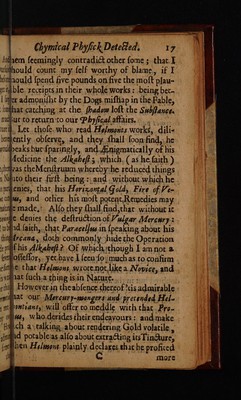 Chymical Physick Detected. 17
them seemingly contradict other some; that I
should count my self worthy of blame, if I
should spend five pounds on five the most plau-
sible receipts in their whole works: being bet-
ter admonisht by the Dogs mishap in the Fable,
that catching at the shadow lost the Substance.
our to return to our Physical affairs.
Let those who read Helmonts works, dili-
gently observe, and they shall soon find, he
speaks but sparingly, and Ænigmatically of his
Medicine the Alkahest; which (as he saith)
was the Menstruum whereby he reduced things
into their first being; and without which he
denies, that his Horizontal Gold, Fire of Ve-
nus, and other his most potent Remedies may
be made. Also they shall find, that without it
he denies the destruction of Vulgar Mercury:
and saith, that Paracelsus in speaking about his
Arcana, doth commonly hide the Operation
of his Alkahest? Of which though I am not a
possessor, yet have I seen so much as to confirm
me that Helmont wrote not like a Novice, and
that such a thing is in Nature.
However in the absence thereof 'tis admirable
that our Mercury-mongers and pretended Hel-
montians, will offer to meddle with that Pro-
who derides their endeavours: and make
such a talking about rendering Gold volatile,
and potable as also about extracting its Tincture,
when Helmont plainly declares that he proficed
C more